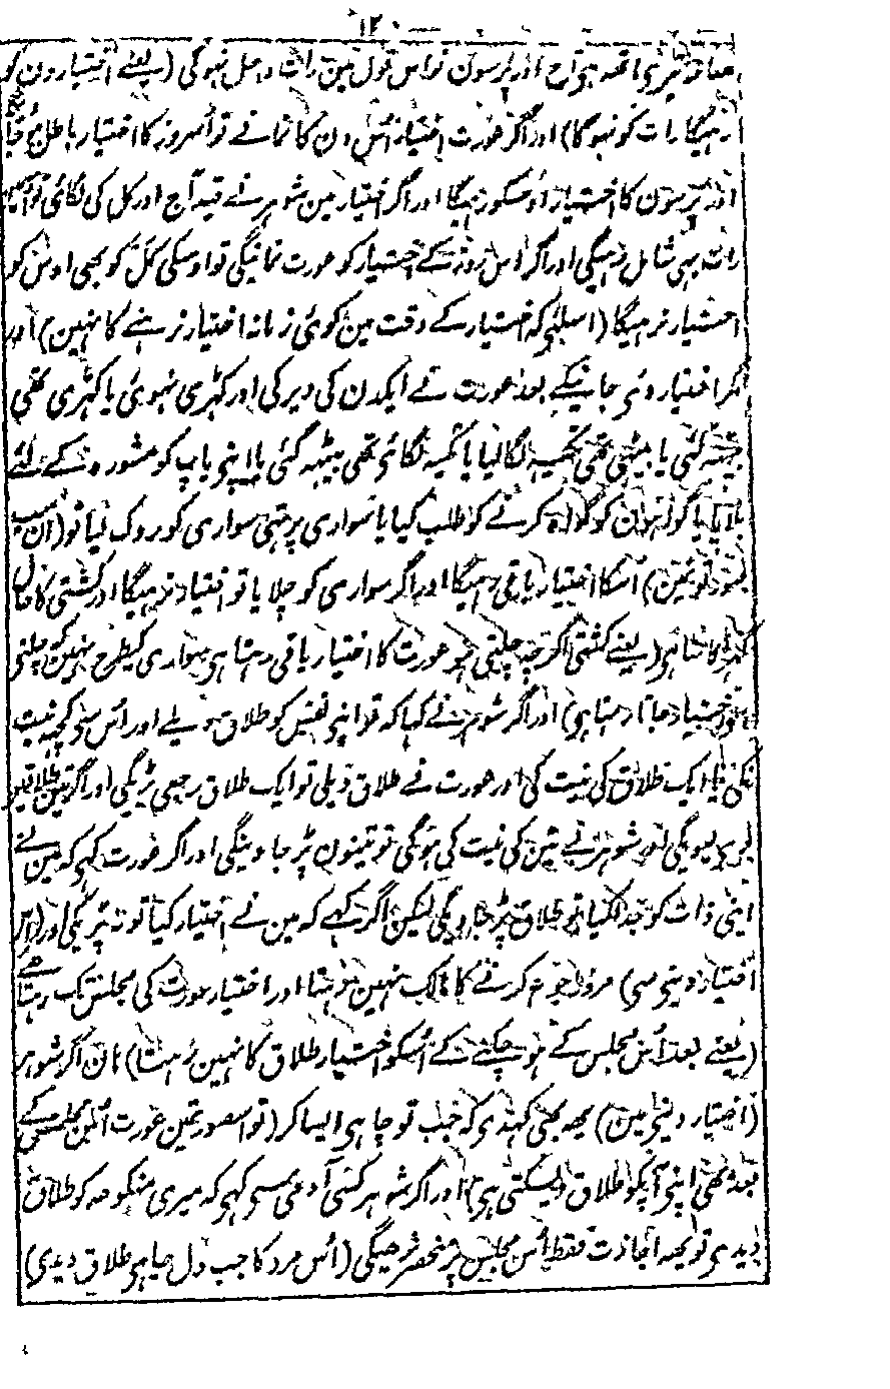 ١٢٠
معاملہ تیری ہاتھ ہی آج اور پرسون تو اس قول مین رات داخل نہوگی (یعنے اختیار دن کو
رہیگا رات کو نہوگا) اور اگر عورت اختیار اُس دن کا نمانے تو اُسروز کا اختیار باطل ہو جائیگا
اور پرسون کا اختیار اُوسکو رہیگا اور اگر اختیار مین شوہر نے قید آج اور کل کی لگائی تو
رات بہی شامل رہیگی اور اگر اُس روز کے اختیار کو عورت نمانیگی تو اوسکی کل کو بھی اوس کو
اختیار نرہیگا (اسلیٔی کہ اختیار کے وقت مین کوئی زمانہ اختیار نرہنے کا نہین) اور
اگر اختیار دیٔی جانیکے بعد عورت نے ایکدن کی دیر کی اور کہڑی نہویٔی یا کہڑی تھی
بیٹھہ گئی یا بیٹھی تھی تکیہ لگا لیا یا تکیہ لگائی تھی بیٹھہ گئی یا اپنی باپ کو مشورہ کے لئے
بلایا یا گواہون کو گواہ کرنے کو طلب کیا یا سواری پر تہی سواری کو روک لیا تو (ان سب
صورتونمین) اُسکا اختیار باقی رہیگا اور اگر سواری کو چلایا تو اختیار نرہیگا اور کشتی کا حال
گھر کا سا ہی (یعنے کشتی اگرچہ چلتی ہو عورت کا اختیار باقی رہتا ہی سواری کیطرح نہین کہ چلنی
سے اختیار جاتا رہتا ہی) اور اگر شوہر نے کہا کہ تو اپنی نفس کو طلاق دیلے اور اُس سی کچہ نیت
نکی یا ایک طلاق کی نیت کی اور عورت نے طلاق دیلی تو ایک طلاق رجعی پڑیگی اور اگر تین طلاقین
دیویگی اور شوہر نے تین کی نیت کی ہوگی تو تینون پڑ جاوینگی اور اگر عورت کہی کہ مین نے
اپنی ذات کو جدا کیا تو طلاق پڑ جاویگی لیکن اگر کہے کہ مین نے اختیار کیا تو نہ پڑیگی اور (اس
اختیار دینی سی) مرد رجوع کرنے کا مالک نہین ہوتا اور اختیار عورت کی مجلس تک رہتا ہے
(یعنے بعد اُس مجلس کے ہو چکنے کے اُسکو اختیار طلاق کا نہین رہتا) ہان اگر شوہر
(اختیار دینی مین) یہہ بھی کہدی کہ جب تو چاہی ایسا کر (تو اسصورتمین عورت اُس مجلس کے
بعد بھی اپنی آپکو طلاق دیسکتی ہی) اور اگر شوہر کسی آدمی سی کہی کہ میری منکوحہ کو طلاق
دیدی تو یہہ اجازت فقط اُس مجلس پر منحصر نرہیگی (اُس مرد کا جب دل چاہی طلاق دیدی)